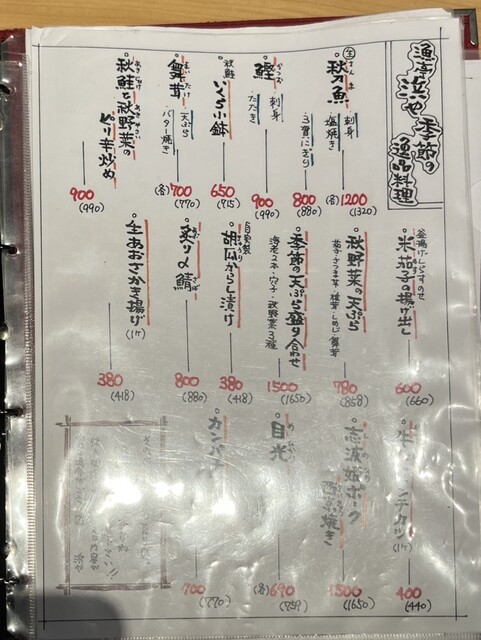 漁港浜や季節の
逸品料理
生 さんま
秋刀魚 刺身 塩焼き (各)1200 (1320)
三貫にぎり 800 (880)
かつお
鰹 刺身 たたき 900 (990)
秋鮭
いくら小鉢 650 (715)
まいたけ
舞茸 天ぷら バター焼き (各)700 (770)
秋鮭と秋野菜の
ピリ辛炒め 900 (990)
釜揚げしらすのせ
米茄子の揚げ出し 600 (660)
秋野菜の天ぷら
茄子・さつま芋・椎茸・しめじ・舞茸 780 (858)
季節の天ぷら盛り合わせ
海老2本・穴子・秋野菜3種 1500 (1650)
自家製
胡瓜からし漬け 380 (418)
炙り〆鯖 800 (880)
生あおさかき揚げ(1ケ) 380 (418)
メンチカツ(1ケ) 400 (440)
志波姫ポーク
焼き 1500 (1650)
目光 (各)690 (759)
カンパチ 700 (770)